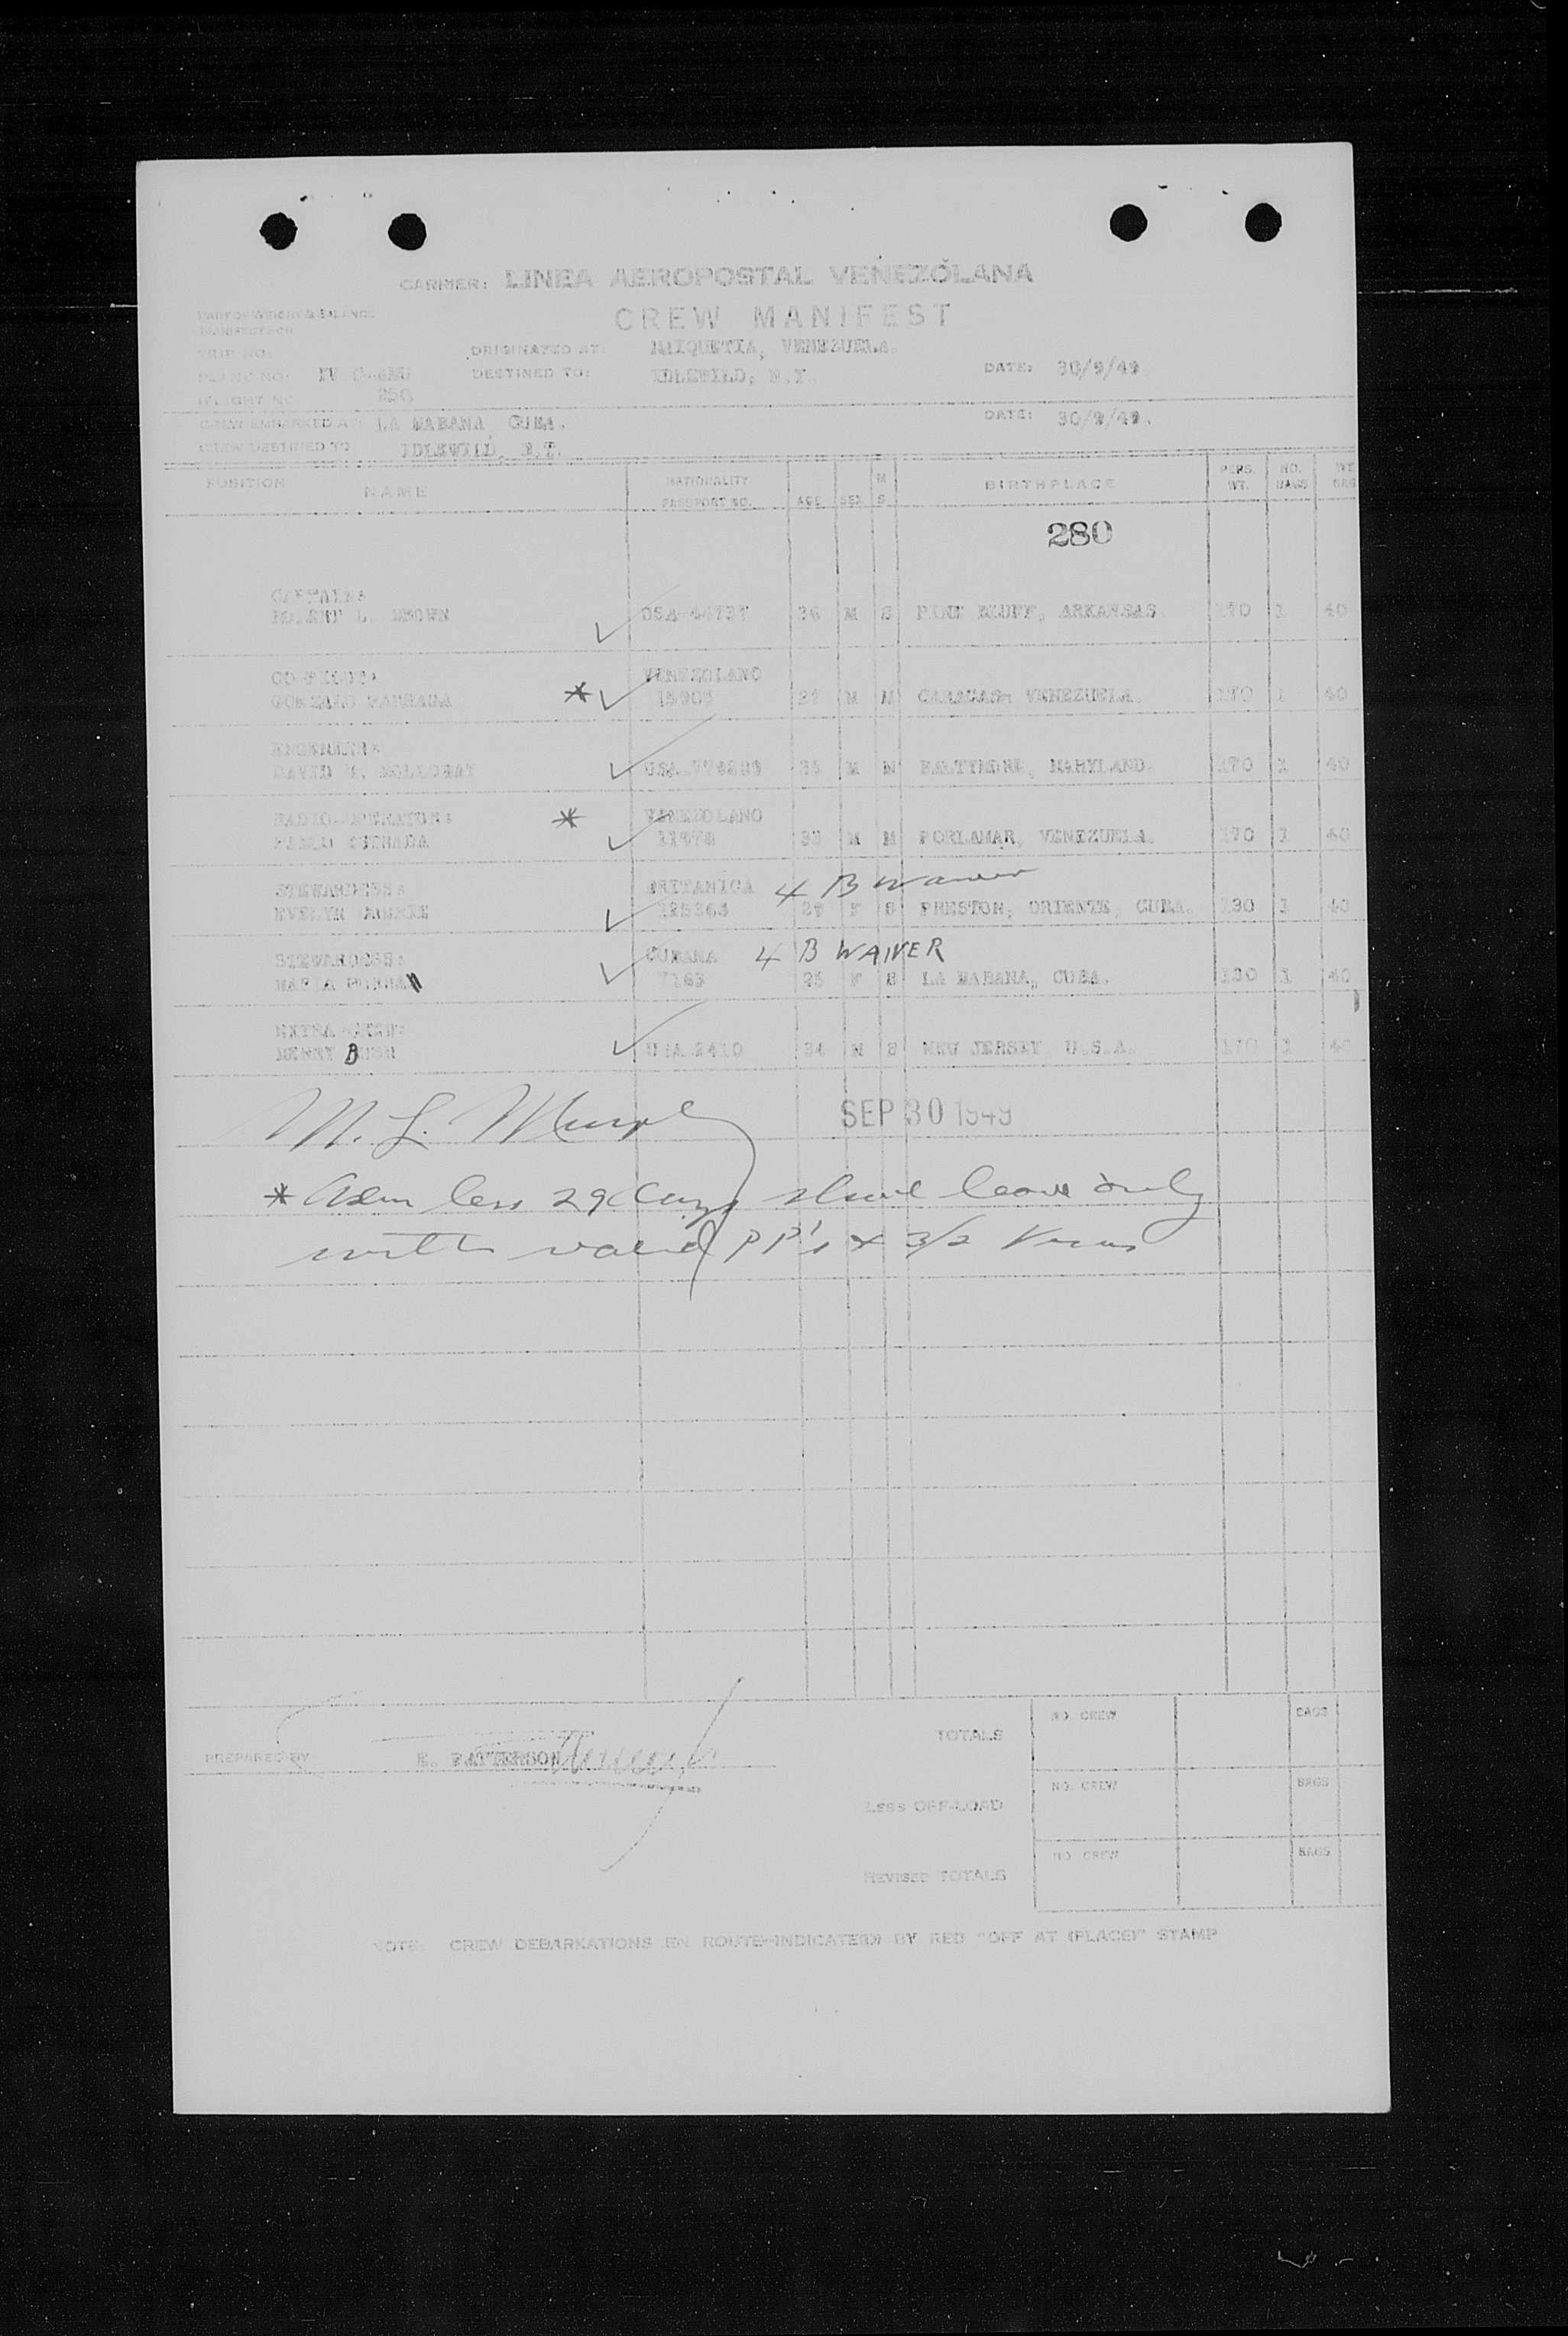 CARRIER: LINEA AEROPOSTAL VENEZOLANA
CREW MANIFEST
PART OF WEIGHT & BALANCE
MANIFEST FOR
TRIP NO.
ORIGINATED AT: MAIQUETIA, VENEZUELA.
PLANE NO. YV
DESTINED TO: IDLEWILD, N.Y.
DATE: 30/9/49.
FLIGHT NO. 280
CREW EMBARKED AT LA HABANA, CUBA.
DATE: 30/9/49.
CREW DESTINED TO IDLEWILD, N.Y.
POSITION NAME NATIONALITY PASSPORT NO. AGE SEX M S BIRTHPLACE PERS. WT. NO. BAGS WT BAG
280
CAPTAIN:
ROBERT L. BROWN USA 36 M S PINE BLUFF, ARKANSAS 170 1 40
CO-PILOT: VENEZOLANO
GONZALO * M M CARACAS, VENEZUELA. 170 1 40
ENGINEER:
DAVID USA 35 M M BALTIMORE, MARYLAND. 170 1 40
RADIO-OPERATOR: * VENEZOLANO
33 M M PORLAMAR, VENEZUELA. 170 1 40
STEWARDESS: BRITANICA 4 B Waiver
EVELYN F S PRESTON, ORIENTE, CUBA. 130 1 40
STEWARDESS: CUBANA 4 B WAIVER
MARIA 7163 25 F S LA HABANA, CUBA. 130 1 40
EXTRA CREW:
HENRY USA 2410 34 M S NEW JERSEY, U.S.A. 170 1 40
M. L. Murphy
SEP 30 1949
* Adm less 29 days shore leave only
with valid PP's & 3/2 Visas
PREPARED BY E. PATTERSON
TOTALS NO. CREW BAGS
LESS OFF-LOAD NO. CREW BAGS
REVISED TOTALS NO. CREW BAGS
NOTE: CREW DEBARKATIONS EN ROUTE INDICATED BY RED "OFF AT (PLACE)" STAMP